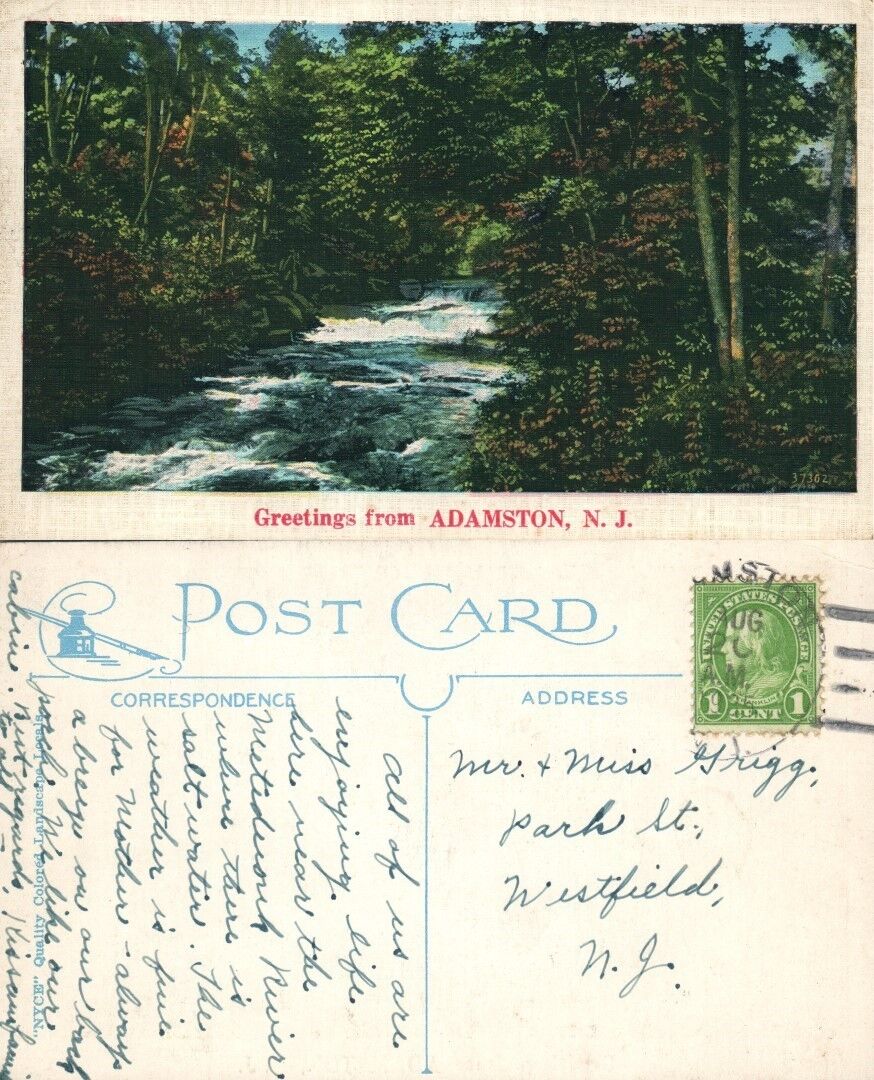 37362
Greetings from ADAMSTON, N. J.
POST CARD
CORRESPONDENCE
ADDRESS
MST
UG
AM
UNITED STATES POSTAGE
FRANKLIN
1 CENT 1
All of us are
enjoying life
here near the
Metedeconk River
where there is
salt water. The
weather is fine
for Mother - always
a breeze on our back
porch. We like our
cabin.
Kind regards
to all,
"NYCE" Quality Colored Landscape Locals
Mr. + Miss Grigg,
Park St.,
Westfield,
N. J.